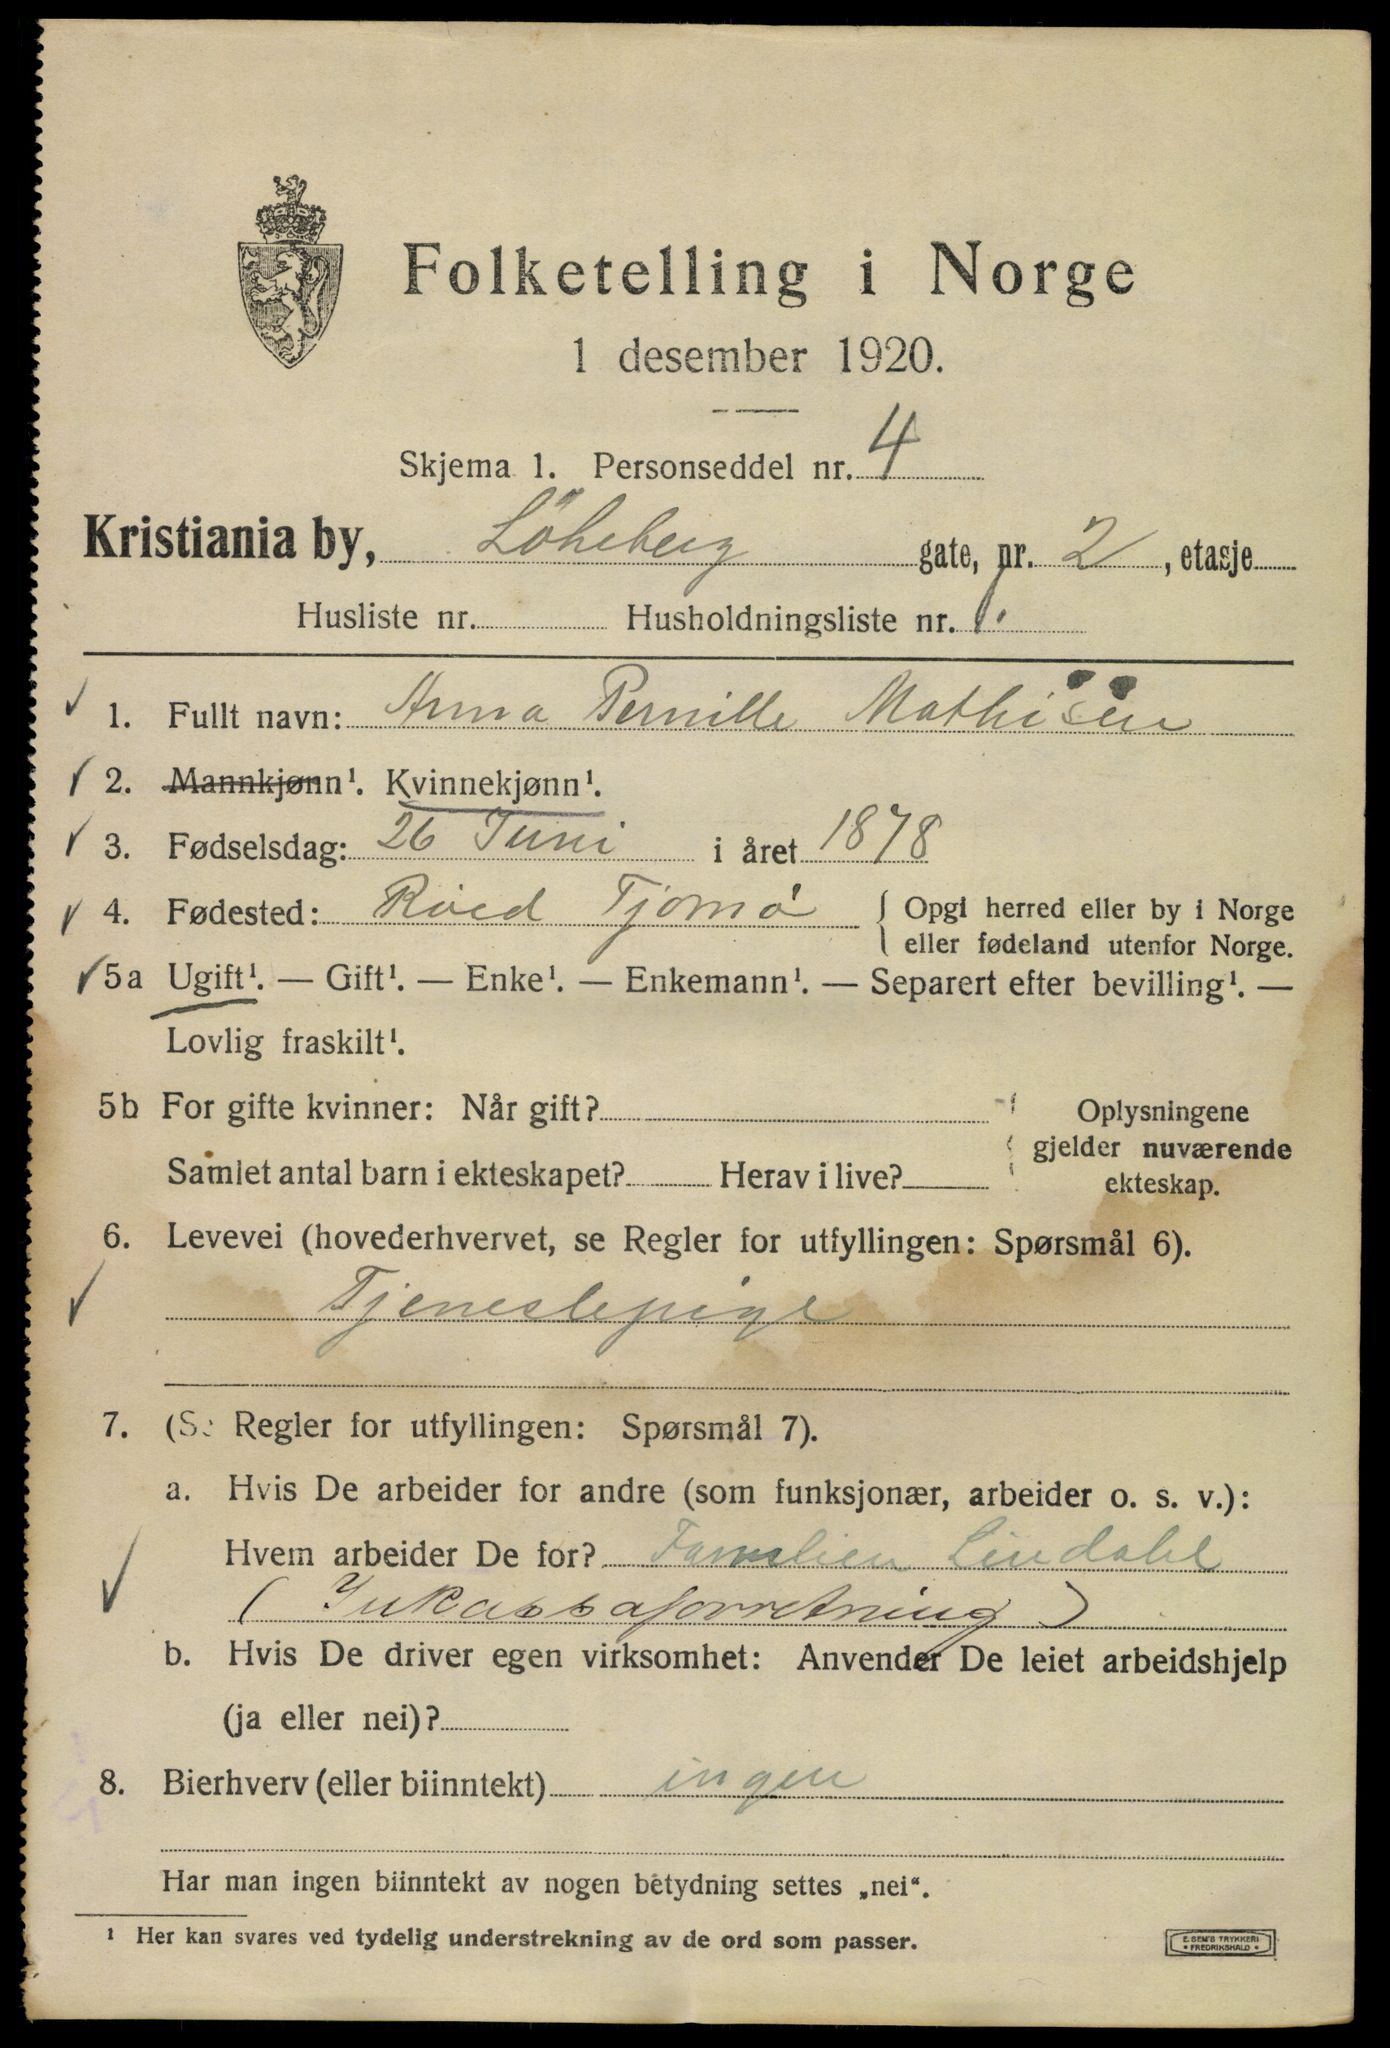 Folketelling i Norge
1 desember 1920.
Skjema 1. Personseddel nr. 4
Kristiania by, Löheberg gate, nr. 2, etasje
Husliste nr. Husholdningsliste nr. 1.
1. Fullt navn: Anna Pernille Mathisen
2. Mannkjønn¹. Kvinnekjønn¹.
3. Fødselsdag: 26 Juni i året 1878
4. Fødested: Röed Tjømö { Opgi herred eller by i Norge
eller fødeland utenfor Norge.
5a Ugift¹. — Gift¹. — Enke¹. — Enkemann¹. — Separert efter bevilling¹. —
Lovlig fraskilt¹.
5b For gifte kvinner: Når gift? Oplysningene
gjelder nuværende
Samlet antal barn i ekteskapet? Herav i live? ekteskap.
6. Levevei (hovederhvervet, se Regler for utfyllingen: Spørsmål 6).
Tjenestepige
7. (Se Regler for utfyllingen: Spørsmål 7).
a. Hvis De arbeider for andre (som funksjonær, arbeider o. s. v.):
Hvem arbeider De for? Familien Lindahl
(Inkassoforretning)
b. Hvis De driver egen virksomhet: Anvender De leiet arbeidshjelp
(ja eller nei)?
8. Bierhverv (eller biinntekt) ingen
Har man ingen biinntekt av nogen betydning settes „nei“.
¹ Her kan svares ved tydelig understrekning av de ord som passer.
E. SEM'S TRYKKERI
• FREDRIKSHALD •